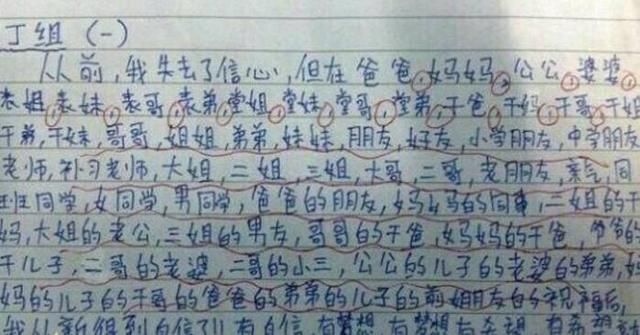 丁组 (一)
从前,我失去了信心,但在爸爸,妈妈,公公,婆婆,
表姐,表妹,表哥,表弟,堂姐,堂妹,堂哥,堂弟,干爸,干妈,干哥,干姐
干弟,干妹,哥哥,姐姐,弟弟,妹妹,朋友,好友,小学朋友,中学朋友
老师,补习老师,大姐,二姐,三姐,大哥,二哥,老朋友,同
班同学,女同学,男同学,爸爸的朋友,妈妈的同事,二姐的干
妈,大姐的老公,三姐的男友,哥哥的干爸,妈妈的干爸,爷爷的
干儿子,二哥的老婆,二哥的小三,公公的儿子的老婆的弟弟,
妈的儿子的干哥的爸爸的弟弟的儿子的前女朋友的祝福后,
我从新得到自信了!!有自信,有梦想